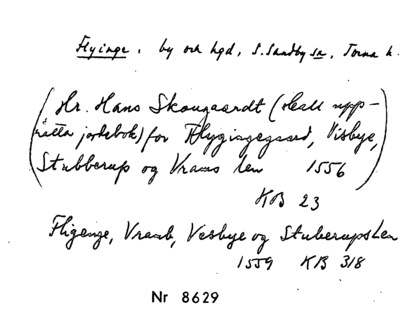 Flyinge, by och hgd, S. Sandby sn, Torna h.
(Hr. Hans Skougaardt (skall upp-
rätta jordebok) for Flyginggegaard, Visbye,
Stubberup og Vrams len 1556)
KB 23
Fligenge, Vramb, Vesbye og Stuberups Len
1559 KB 318
Nr 8629